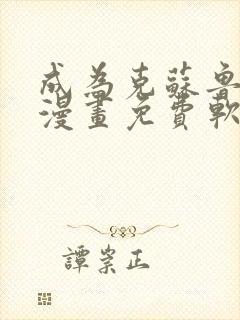 成為克蘇魯
漫畫免費軟
譚崇正